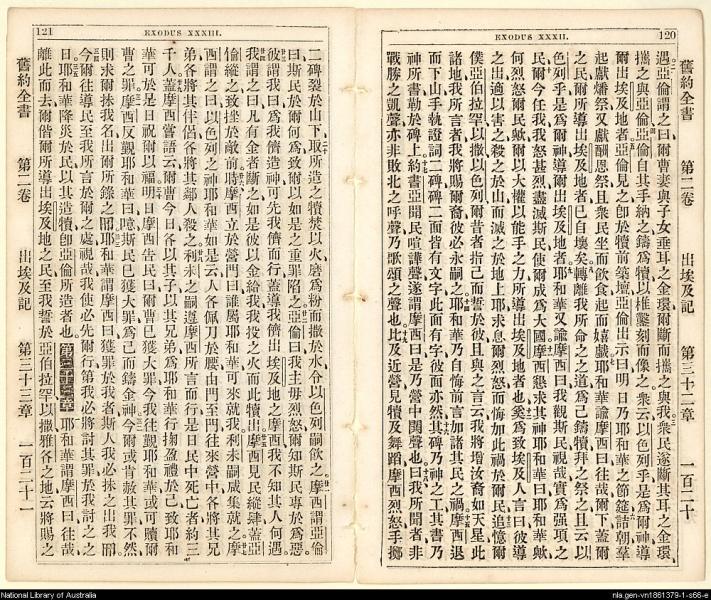 EXODUS XXXII.
120
舊約全書
第二卷
出埃及記
第三十二章
一百二十
遇亞倫謂之曰爾曹妻與子女垂耳之金環爾斷而攜之與我衆民遂斷其耳之金環
攜之與亞倫亞倫自其手納之鑄爲犢以椎鑿刻而像之衆云以色列乎是爲爾神導
爾出埃及地者亞倫見之卽於犢前築壇亞倫出示曰明日乃耶和華之節筵詰朝羣
起獻燔祭又獻酬恩祭且衆民坐而飲食起而嬉戲耶和華諭摩西曰往哉爾下蓋爾
之民爾所導出埃及地者已自壞矣轉離我所命之之道爲己鑄犢拜之祭之且云以
色列乎是爲爾神導爾出埃及地者耶和華又諭摩西曰我觀斯民視哉實爲强項之
民爾今任我我怒甚烈盡滅斯民使爾成爲大國摩西懇求其神耶和華曰耶和華歟
何烈怒爾民歟爾以大權以能手之力所導出埃及地者也奚爲致埃及人言曰彼導
之出適以害之殺之於山而滅之於地上耶求息爾烈怒而悔加此禍於爾民追憶爾
僕亞伯拉罕以撒以色列爾昔者指己而誓於彼且與之言云我將增汝裔如天星此
諸地我所言者我將賜爾裔彼必永嗣之耶和華乃自悔前言加諸其民之禍摩西退
而下山手執證詞二碑碑二面皆有文字此面有字彼面亦然其碑乃神之工其書乃
神所書勒於碑上約書亞聞民喧譁聲遂謂摩西曰是乃營中鬨聲也曰我所聞者非
戰勝之凱聲亦非敗北之呼聲乃歌頌之聲也比及近營見犢及舞蹈摩西烈怒手擲
121
EXODUS XXXIII.
二碑裂於山下取所造之犢焚以火磨爲粉而撒於水令以色列嗣飲之摩西謂亞倫
曰斯民於爾何爲致爾以如是之重罪陷之亞倫曰我主毋烈怒爾知斯民專於爲惡
彼謂我曰爲我儕造神可先我儕而行蓋導我儕出埃及地之摩西我不知其人何遇
我謂之曰凡有金者斷之如是彼以金給我我投之火而此犢出摩西見民縱肆蓋亞
倫縱之致挫於敵前時摩西立於營門曰誰屬耶和華可來就我利未嗣咸集就之摩
西謂之曰以色列之神耶和華如是云人各佩刀於腰由門至門往來營中各將其兄
弟各將其伴侶各將其鄰人殺之利未之嗣遵摩西所言而行是日民中死亡者約三
千人蓋摩西嘗語云爾曹今日各以其子以其兄弟爲耶和華行掬盈禮於己致耶和
華可於是日祝爾以福明日摩西告民曰爾曹已獲大罪今我往覲耶和華或可贖爾
曹之罪摩西反觀耶和華曰噫斯民已獲大罪爲己而鑄金神今爾或肯赦其罪不然
則求爾抹我名出爾所錄之册耶和華謂摩西曰獲罪於我者斯人我必抹之出我册
今爾往導民至我所言於爾之處視哉我使必先爾行第我必將討其罪於我討之之
日耶和華降災於民以其造犢卽亞倫所造者也第三十三章耶和華謂摩西曰往哉
離此而去爾偕爾所導出埃及地之民至我誓於亞伯拉罕以撒雅各之地云將賜之
舊約全書
第二卷
出埃及記
第三十三章
一百二十一
National Library of Australia
nla.gen-vn1861379-1-s66-e